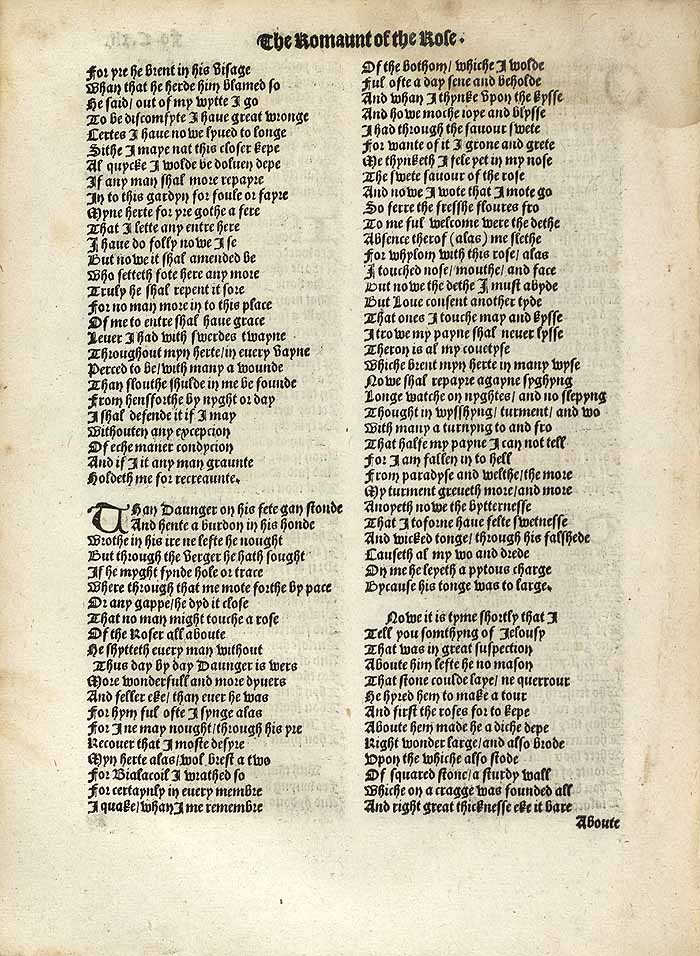 The Romaunt of the Rose.
For yre he brent in his visage
Whan that he herde him blamed so
He said/ out of my wytte I go
To be discomfyte I have great wronge
Certes I have nowe lyued to longe
Sithe I maye nat this closer kepe
Al quycke I wolde be doluen depe
If any man shal more repayre
In to this gardyn for foule or fayre
Myne herte for yre gothe a fere
That I lette any entre here
I haue do folly nowe I se
But nowe it shal amended be
Who setteth fote here any more
Truly he shal repent it sore
For no man more in to this place
Of me to entre shal haue grace
Leuer I had with swerdes twayne
Throughout myn herte/in euery vayne
Perced to be/with many a wounde
Than slouthe shulde in me be founde
From hensforthe by nyght or day
I shal defende it if I may
Withouten any excepcion
Of eche maner condycion
And if I it any man graunte
Holdeth me for recreaunte.
Than Daunger on his fete gan stonde
And hente a burdon in his honde
Wrothe in his ire ne lefte he nought
But through the verger he hath sought
If he myght fynde hole or trace
Where through that me mote forthe by pace
Or any gappe/he dyd it close
That no man might touche a rose
Of the Roser all aboute
He shytteth euery man without
Thus day by day Daunger is wers
More wonderfull and more dyuers
And feller eke/ than euer he was
For hym ful ofte I synge alas
For I ne may nought/through his yre
Recouer that I moste desyre
Myn herte alas/wol brest a two
For Bialacoil I wrathed so
For certaynly in euery membre
I quake/whan I me remembre
Of the bothom/ whiche I wolde
Ful ofte a day sene and beholde
And whan I thynke vpon the kysse
And howe moche ioye and blysse
I had through the sauour swete
For wante of it I grone and grete
Me thynketh I fele yet in my nose
The swete sauour of the rose
And nowe I wote that I mote go
So ferre the fresshe floures fro
To me ful welcome were the dethe
Absence therof (alas) me slethe
For whylom with this rose/ alas
I touched nose/mouthe/ and face
But nowe the dethe I must abyde
But Loue consent another tyde
That ones I touche may and kysse
I trowe my payne shal neuer lysse
Theron is al my couetyse
Whiche brent myn herte in many wyse
Nowe shal repayre agayne syghyng
Longe watche on nyghtes/ and no slepyng
Thought in wysshyng/ turment/ and wo
With many a turnyng to and fro
That halfe my payne I can not tell
For I am fallen in to hell
From paradyse and welthe/ the more
My turment greueth more/and more
Anoyeth nowe the bytternesse
That I toforne haue felte swetnesse
And wicked tonge/ through his falshede
Causeth al my wo and drede
On me he leyeth a pytous charge
Bycause his tonge was to large.
Nowe it is tyme shortly that I
Tell you somthyng of Jelousy
That was in great suspection
Aboute him lefte he no mason
That stone coulde laye/ ne querrour
He hyred hem to make a tour
And first the roses for to kepe
Aboute hem made he a diche depe
Right wonder large/and also brode
Vpon the whiche also stode
Of squared stone/ a sturdy wall
Whiche on a cragge was founded all
And right great thicknesse eke it bare
Aboute